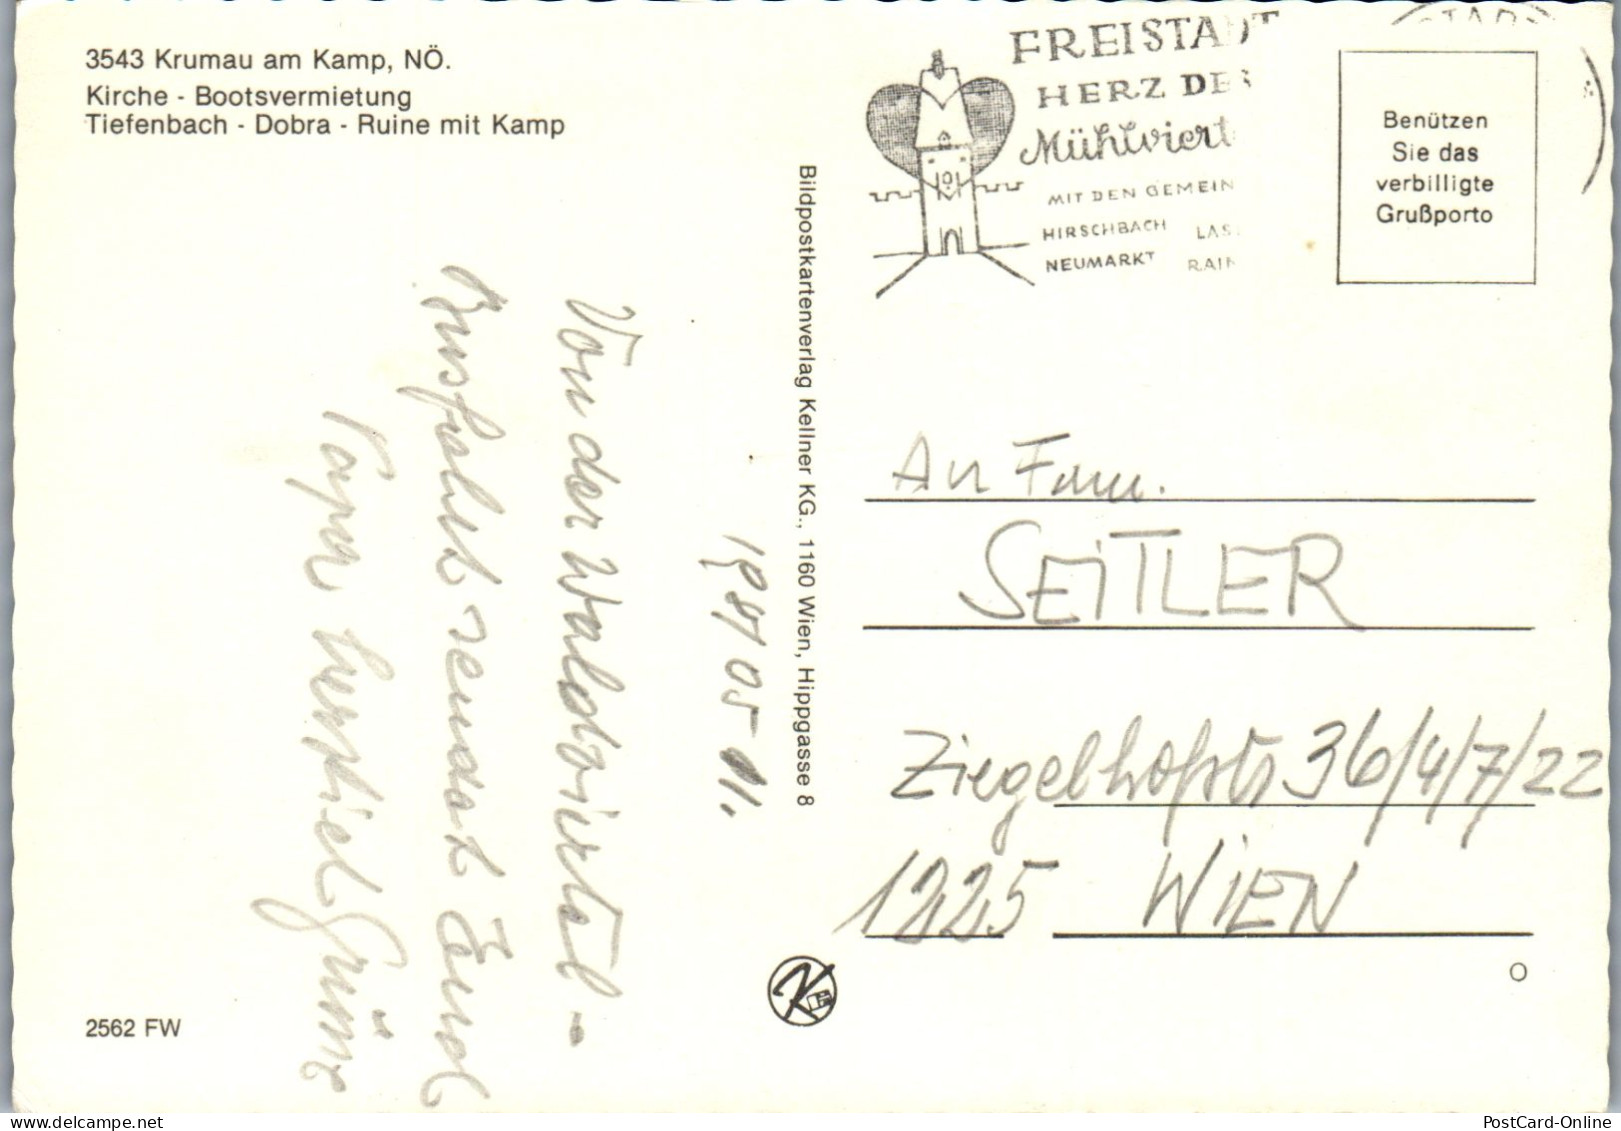 3543 Krumau am Kamp, NÖ.
Kirche - Bootsvermietung
Tiefenbach - Dobra - Ruine mit Kamp
FREISTADT
HERZ DES
Mühlviert
MIT DEN GEMEIN
HIRSCHBACH LAS
NEUMARKT RAIN
Benützen
Sie das
verbilligte
Grußporto
Bildpostkartenverlag Kellner KG., 1160 Wien, Hippgasse 8
1987 05 01.
Von der Waldviertel-
Busfahrt sendet Euch
Papa herzliche Grüße
An Fam.
SEiTLER
Ziegelhofstr 36/4/7/22
1225 WiEN
2562 FW
O
PostCard-Online